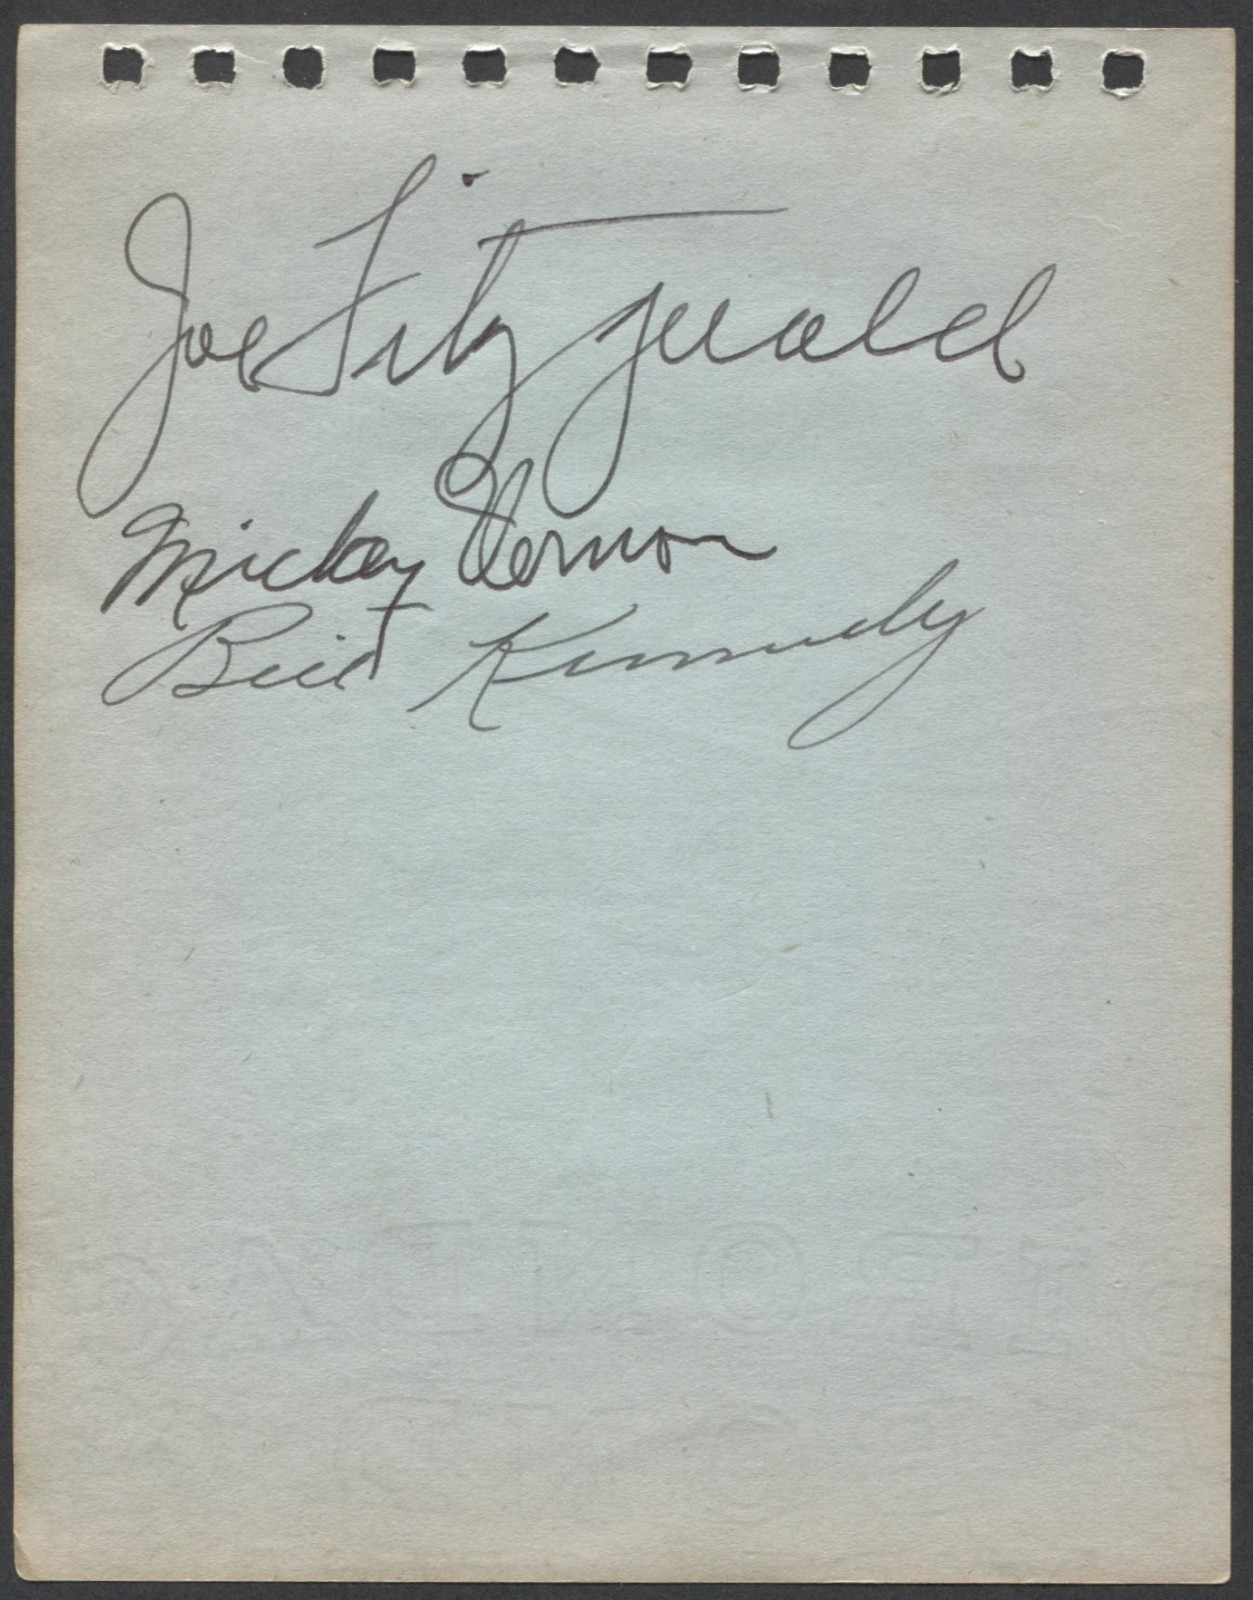 Joe Fitzgerald
Mickey Vernon
Bill Kennedy